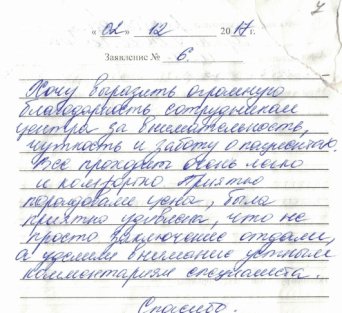 « 02 » 12 2017 г.
Заявление № 6.
Хочу выразить огромную
благодарность сотрудникам
центра за внимательность,
чуткость и заботу о пациентах.
Все проходит очень легко
и комфортно. Приятно
порадовали цена, была
приятно удивлена, что не
просто заключение отдали,
а уделили внимание устным
комментариям специалиста.
Спасибо.